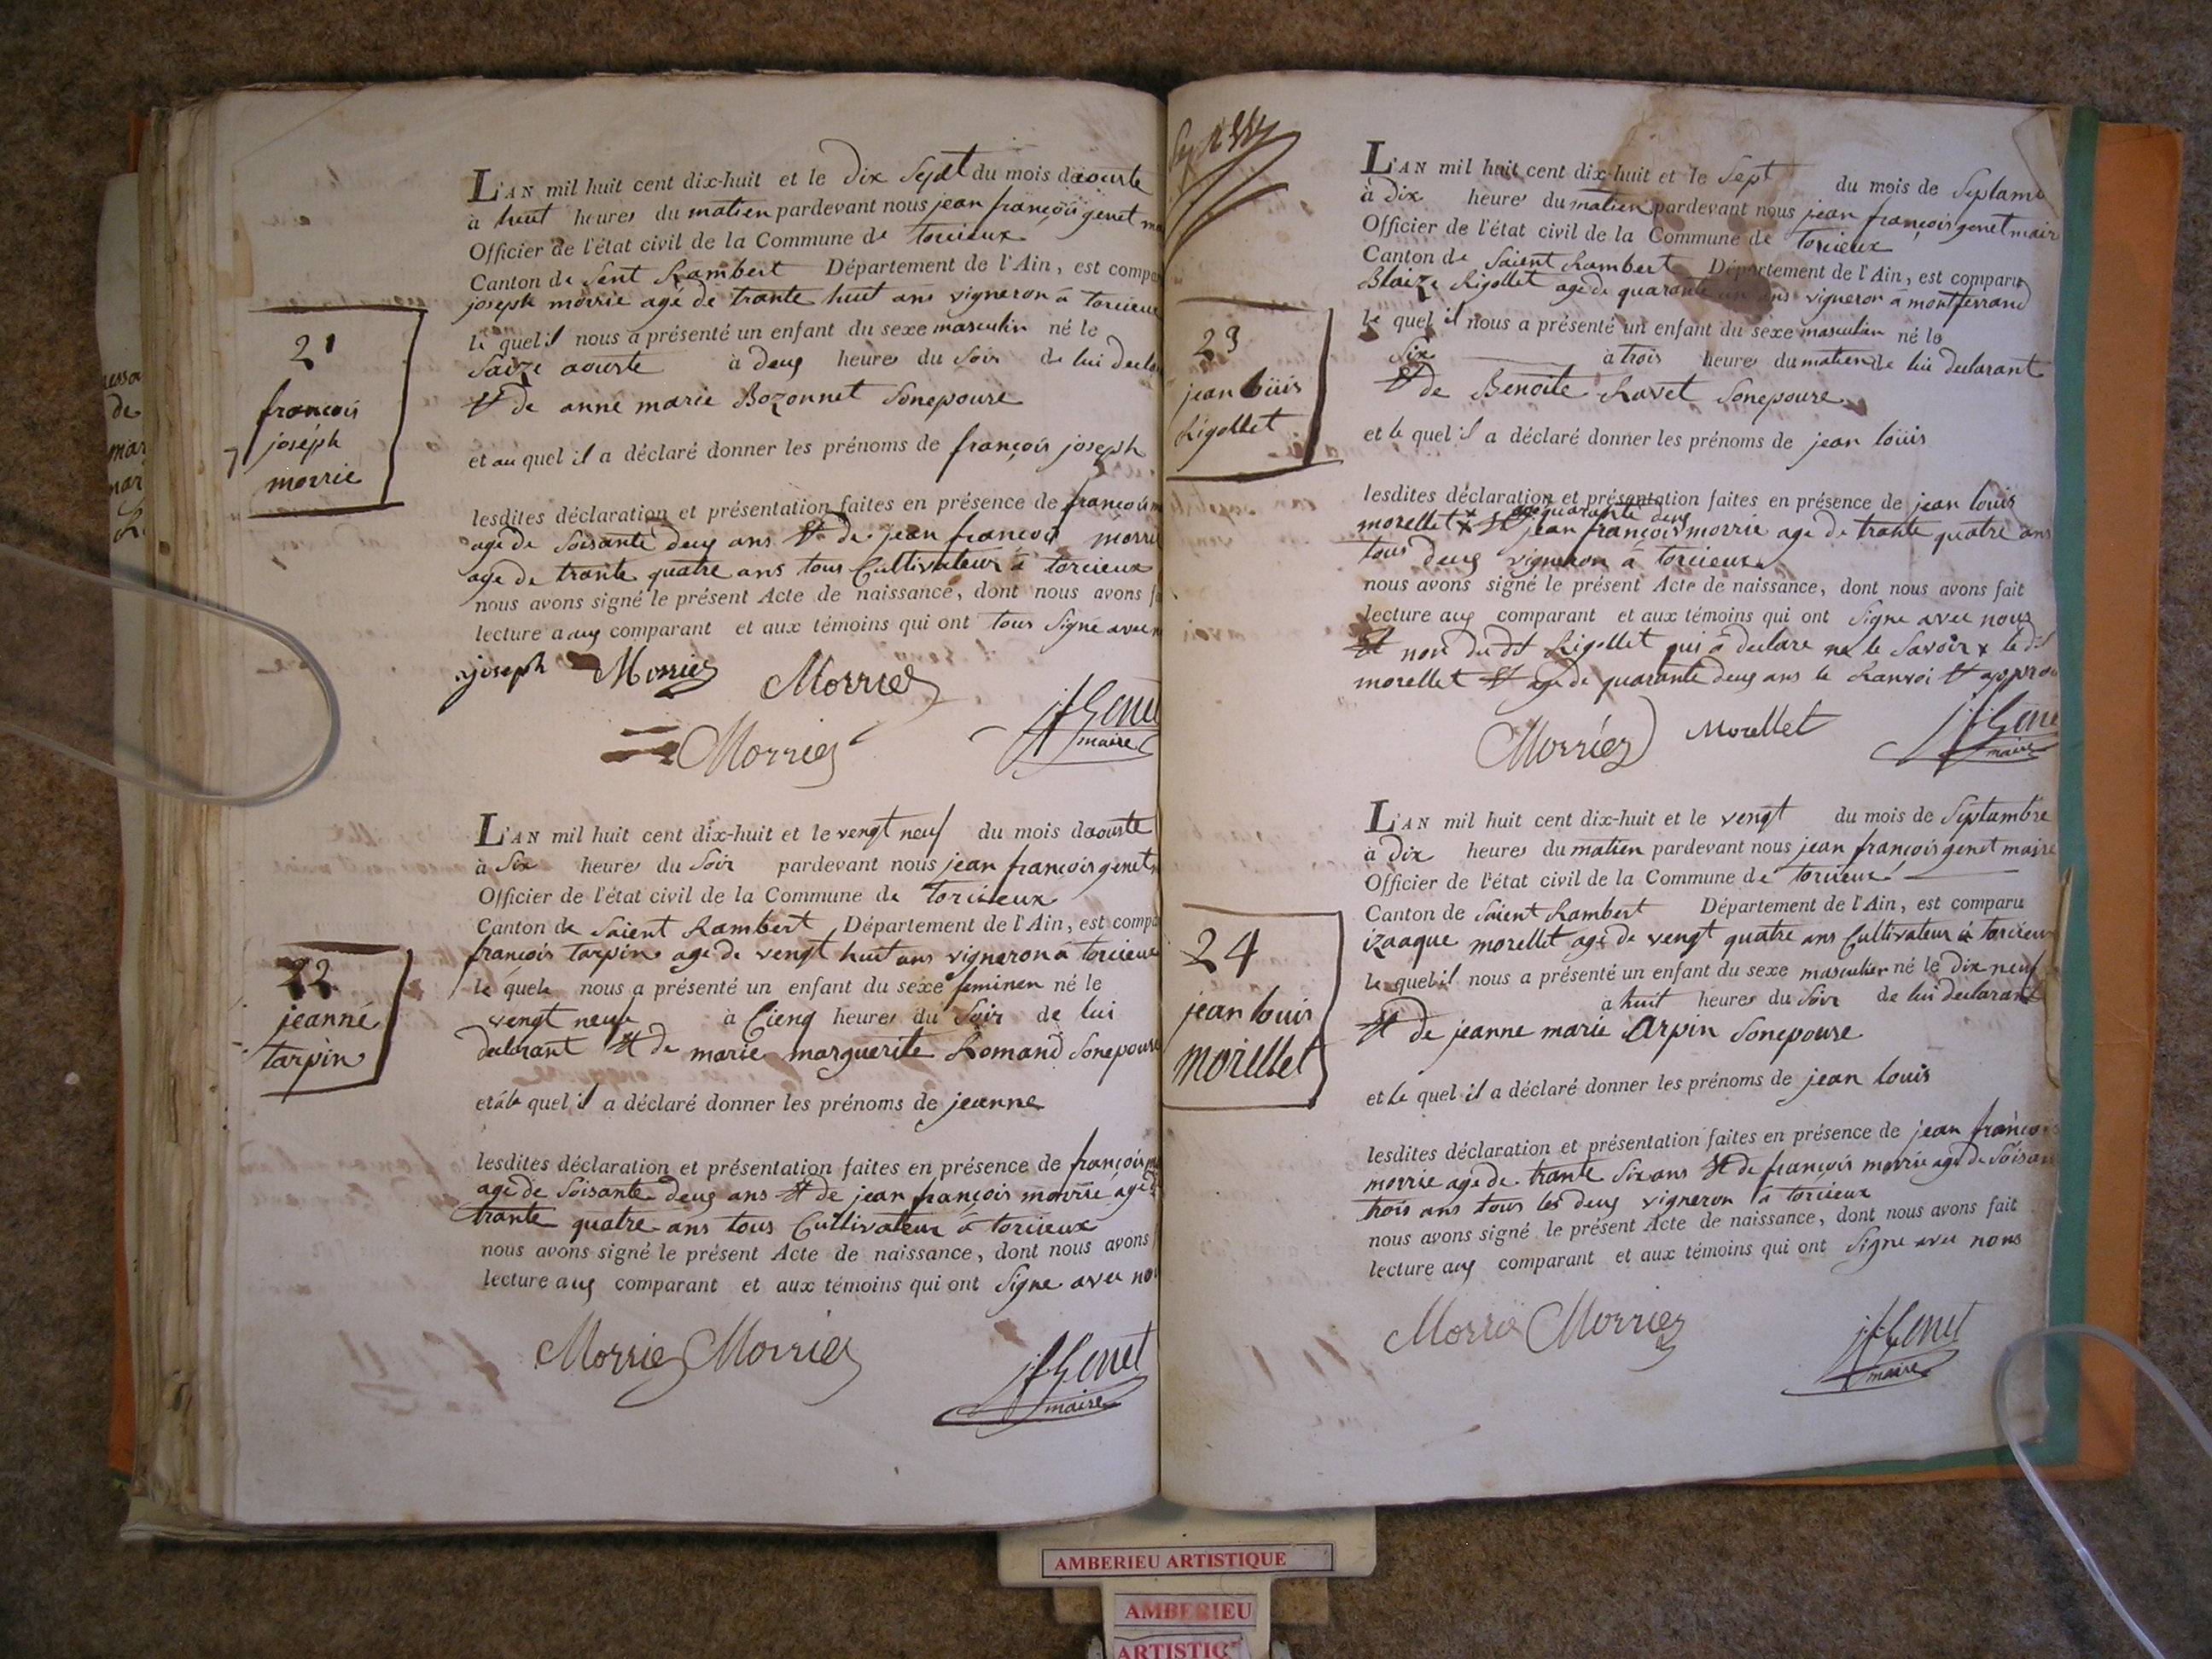 21
françois
joseph
morrie
L'AN mil huit cent dix-huit et le dix Sept du mois daouste
à huit heures du matien pardevant nous jean françois genet
Officier de l'état civil de la Commune de torcieux
Canton de Sent Rambert Département de l'Ain, est compa
joseph morrie age de trante huit ans vigneron à torcieux
le quel il nous a présenté un enfant du sexe masculin né le
Saize aouste à deuy heures du Soir de lui decla
et de anne marie Bozonnet Sonepouse
et au quel il a déclaré donner les prénoms de françois joseph
lesdites déclaration et présentation faites en présence de françois
age de Soisante deuy ans et de jean francois morrie
age de trante quatre ans tous Cultivateur à torcieux
nous avons signé le présent Acte de naissance, dont nous avons
lecture a auy comparant et aux témoins qui ont tous Signe avec
joseph Morrier Morrier
Morrier jfGenet
maire
22
jeanne
tarpin
L'AN mil huit cent dix-huit et le vengt neuf du mois daouste
à Six heures du Soir pardevant nous jean françois genet
Officier de l'état civil de la Commune de torcieux
Canton de Saient Rambert Département de l'Ain, est compa
françois tarpin age de vengt huit ans vigneron à torcieux
le quele nous a présenté un enfant du sexe feminen né le
vengt neufe à Cienq heures du Soir de lui
declarant et de marie marguerite Romand Sonepouse
et à le quel il a déclaré donner les prénoms de jeanne
lesdites déclaration et présentation faites en présence de françois
age de Soisante deuy ans et de jean françois morrie age
trante quatre ans tous Cultivateur à torcieux
nous avons signé le présent Acte de naissance, dont nous avons
lecture auy comparant et aux témoins qui ont Signe avec
Morrier Morrier jfGenet
maire
23
jean loüis
Rigollet
L'AN mil huit cent dix-huit et le Sept du mois de Septamb
à dix heures du matien pardevant nous jean françois genet mair
Officier de l'état civil de la Commune de torcieux
Canton de Saient Rambert Département de l'Ain, est comparu
Blaize Rigollet age de quarante un ans vigneron à montferrand
le quel il nous a présenté un enfant du sexe masculin né le
Six à trois heures du matien de lui declarant
et de Benoite Ravet Sonepouse
et le quel il a déclaré donner les prénoms de jean loüis
lesdites déclaration et présentation faites en présence de jean louis
age quarante deuy
morellet x et jean françois morrie age de trante quatre ans
tous deuy vigneron à torcieux
nous avons signé le présent Acte de naissance, dont nous avons fait
lecture auy comparant et aux témoins qui ont Signe avec nous
et non du dt Rigollet qui à declare ne le Savoir x le dit
morellet et age de quarante deuy ans le Ranvoi et approu
Morrier Morellet jfGene
maire
24
jean louis
Morellet
L'AN mil huit cent dix-huit et le vengt du mois de Septambre
à dix heures du matien pardevant nous jean françois genet maire
Officier de l'état civil de la Commune de torcieux
Canton de Saient Rambert Département de l'Ain, est comparu
izaaque morellet age de vengt quatre ans Cultivateur à torcieux
le quel il nous a présenté un enfant du sexe masculien né le dix neuf
à huit heures du Soir de lui declarant
et de jeanne marie Arpin Sonepouse
et le quel il a déclaré donner les prénoms de jean louis
lesdites déclaration et présentation faites en présence de jean françois
morrie age de trante Six ans et de françois morrie age de Soisan
trois ans tous les deuy vigneron à torcieux
nous avons signé le présent Acte de naissance, dont nous avons fait
lecture auy comparant et aux témoins qui ont Signe avec nous
Morrie Morrier jfGenet
maire
AMBERIEU ARTISTIQUE
AMBERIEU
ARTISTIQ